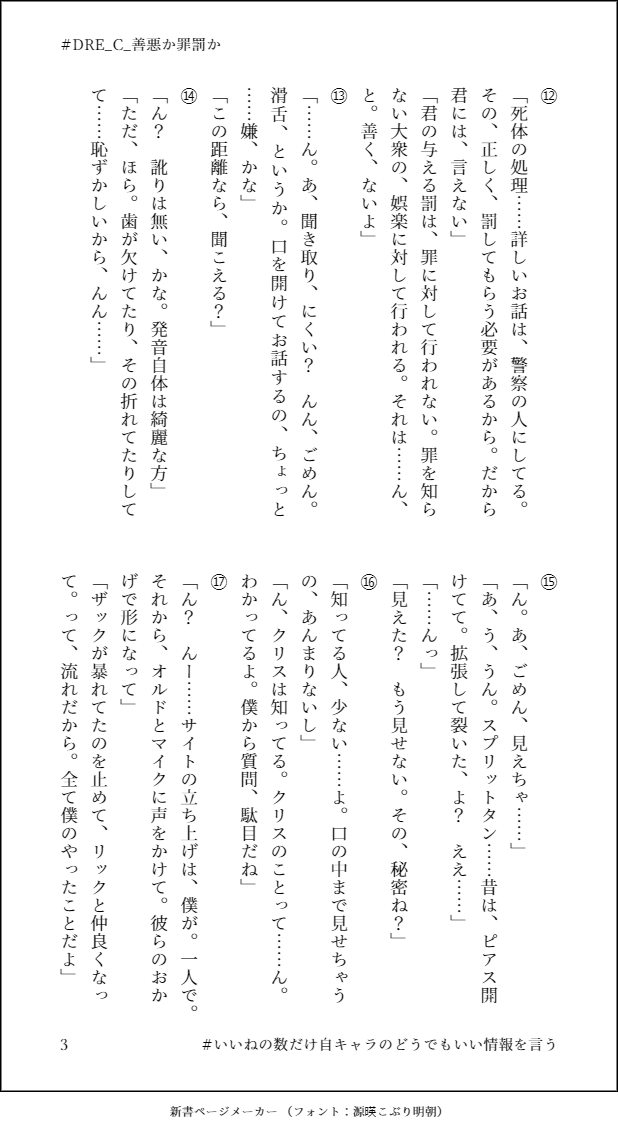 #DRE_C_善悪か罪罰か
⑫
「死体の処理……詳しいお話は、警察の人にしてる。
その、正しく、罰してもらう必要があるから。だから
君には、言えない」
「君の与える罰は、罪に対して行われない。罪を知ら
ない大衆の、娯楽に対して行われる。それは……ん、
と。善く、ないよ」
⑬
「……ん。あ、聞き取り、にくい？　んん、ごめん。
滑舌、というか。口を開けてお話するの、ちょっと
……嫌、かな」
「この距離なら、聞こえる？」
⑭
「ん？　訛りは無い、かな。発音自体は綺麗な方」
「ただ、ほら。歯が欠けてたり、その折れてたりして
て……恥ずかしいから、んん……」
⑮
「ん。あ、ごめん、見えちゃ……」
「あ、う、うん。スプリットタン……昔は、ピアス開
けてて。拡張して裂いた、よ？　ええ……」
「……んっ」
「見えた？　もう見せない。その、秘密ね？」
⑯
「知ってる人、少ない……よ。口の中まで見せちゃう
の、あんまりないし」
「ん、クリスは知ってる。クリスのことって……ん。
わかってるよ。僕から質問、駄目だね」
⑰
「ん？　んー……サイトの立ち上げは、僕が。一人で。
それから、オルドとマイクに声をかけて。彼らのおか
げで形になって」
「ザックが暴れてたのを止めて、リックと仲良くなっ
て。って、流れだから。全て僕のやったことだよ」
3
#いいねの数だけ自キャラのどうでもいい情報を言う
新書ページメーカー（フォント：源暎こぶり明朝）